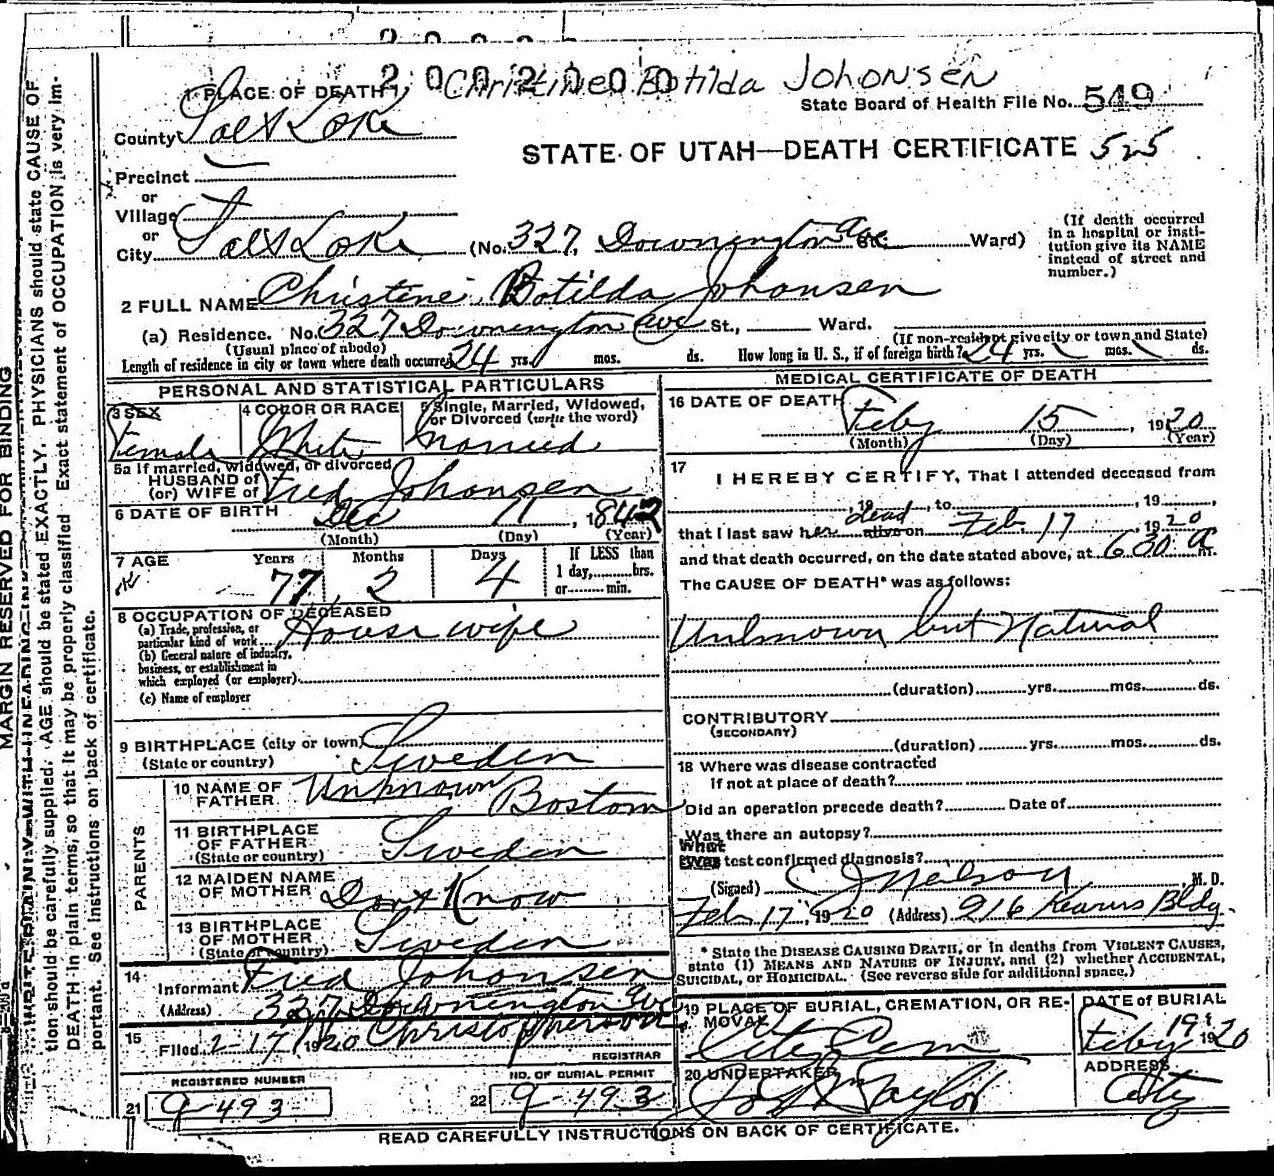 2002000 Christine Botilda Johonsen
1 PLACE OF DEATH
State Board of Health File No. 549
County Salt Lake
STATE OF UTAH—DEATH CERTIFICATE 525
Precinct
or
Village
or
City Salt Lake (No. 327, Downington Ave St. Ward)
(If death occurred in a hospital or institution give its NAME instead of street and number.)
2 FULL NAME Christine Botilda Johansen
(a) Residence. No. 327 Downington Ave St., Ward.
(Usual place of abode) (If non-resident give city or town and State)
Length of residence in city or town where death occurred 24 yrs. mos. ds. How long in U. S., if of foreign birth? 24 yrs. mos. ds.
PERSONAL AND STATISTICAL PARTICULARS
3 SEX 4 COLOR OR RACE 5 Single, Married, Widowed, or Divorced (write the word)
Female White Married
5a If married, widowed, or divorced
HUSBAND of
(or) WIFE of Fred Johansen
6 DATE OF BIRTH Dec 11, 1842
(Month) (Day) (Year)
7 AGE Years Months Days If LESS than
1 day, hrs.
or min.
77 2 4
8 OCCUPATION OF DECEASED
(a) Trade, profession, or
particular kind of work House wife
(b) General nature of industry,
business, or establishment in
which employed (or employer)
(c) Name of employer
9 BIRTHPLACE (city or town)
(State or country) Sweden
PARENTS
10 NAME OF FATHER Unknown Bostom
11 BIRTHPLACE
OF FATHER Sweden
(State or country)
12 MAIDEN NAME
OF MOTHER Dont Know
13 BIRTHPLACE
OF MOTHER Sweden
(State or country)
14
Informant Fred Johansen
(Address) 327 Downington Ave
15 Filed 2-17 1920 Christopherson
REGISTRAR
REGISTERED NUMBER NO. OF BURIAL PERMIT
21 9-493 22 9-493
MEDICAL CERTIFICATE OF DEATH
16 DATE OF DEATH
Feby 15, 1920
(Month) (Day) (Year)
17 I HEREBY CERTIFY, That I attended deceased from
, 19 , to , 19 ,
that I last saw her dead alive on Feb 17, 1920
and that death occurred, on the date stated above, at 630 a m.
The CAUSE OF DEATH* was as follows:
Unknown but Natural
(duration) yrs. mos. ds.
CONTRIBUTORY
(SECONDARY)
(duration) yrs. mos. ds.
18 Where was disease contracted
if not at place of death?
Did an operation precede death? Date of
Was there an autopsy?
What test confirmed diagnosis?
(Signed) C J Nelson M. D.
Feb 17, 1920 (Address) 916 Kearns Bldg.
* State the DISEASE CAUSING DEATH, or in deaths from VIOLENT CAUSES,
state (1) MEANS AND NATURE OF INJURY, and (2) whether ACCIDENTAL,
SUICIDAL, or HOMICIDAL. (See reverse side for additional space.)
19 PLACE OF BURIAL, CREMATION, OR REMOVAL DATE of BURIAL
City Cem Feby 19, 1920
20 UNDERTAKER ADDRESS
Jos Wm Taylor City
READ CAREFULLY INSTRUCTIONS ON BACK OF CERTIFICATE.
MARGIN RESERVED FOR BINDING
tion should be carefully supplied. AGE should be stated EXACTLY. PHYSICIANS should state CAUSE OF
DEATH in plain terms, so that it may be properly classified. Exact statement of OCCUPATION is very im-
portant. See instructions on back of certificate.